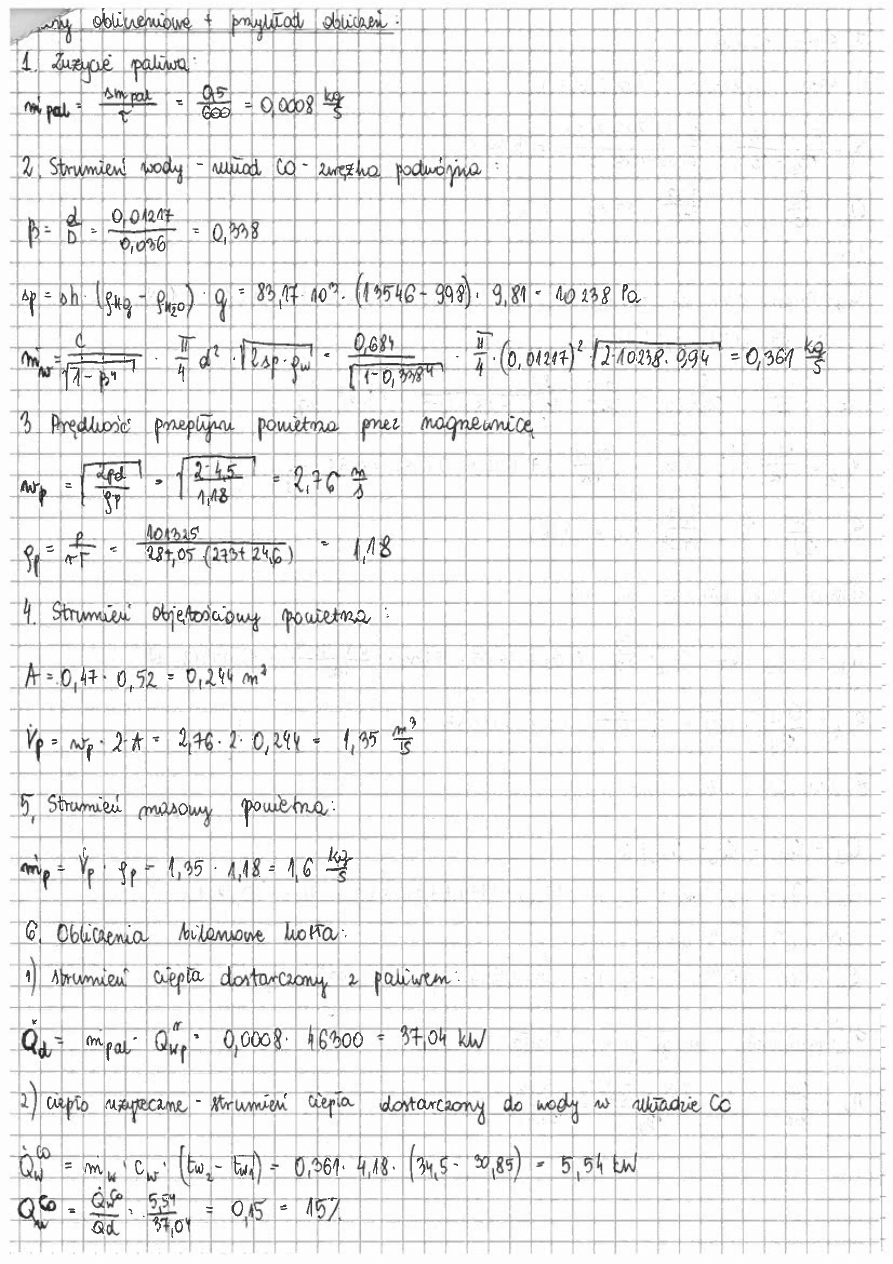 obliczeniowe + przykład obliczeń:
1. Zużycie paliwa:
ṁpal = Δmpal/τ = 0,5/600 = 0,0008 kg/s
2. Strumień wody - układ CO - zwężka podwójna:
β = d/D = 0,01217/0,036 = 0,338
Δp = Δh · (ρHg - ρH2O) · g = 83,17·10³ · (13546 - 998) · 9,81 = 10238 Pa
ṁw = C/√(1-β⁴) · π/4 d² · √(2Δp·ρw) = 0,684/√(1-0,338⁴) · π/4 · (0,01217)² √(2·10238·994) = 0,361 kg/s
3 Prędkość przepływu powietrza przez nagrzewnicę
wp = √(2pd/ρp) = √(2·4,5/1,18) = 2,76 m/s
ρp = p/rT = 101325/287,05·(273+24,6) = 1,18
4. Strumień objętościowy powietrza:
A = 0,47 · 0,52 = 0,244 m²
V̇p = wp · 2·A = 2,76 · 2 · 0,244 = 1,35 m³/s
5. Strumień masowy powietrza:
ṁp = V̇p · ρp = 1,35 · 1,18 = 1,6 kg/s
6. Obliczenia bilansowe kotła:
1) strumień ciepła dostarczony z paliwem:
Q̇d = ṁpal · Qwp = 0,0008 · 46300 = 37,04 kW
2) ciepło użyteczne - strumień ciepła dostarczony do wody w układzie CO
Q̇w^CO = ṁw · cw · (tw2 - tw1) = 0,361 · 4,18 · (34,5 - 30,85) = 5,54 kW
Qw^CO = Q̇w^CO/Q̇d = 5,54/37,04 = 0,15 = 15%